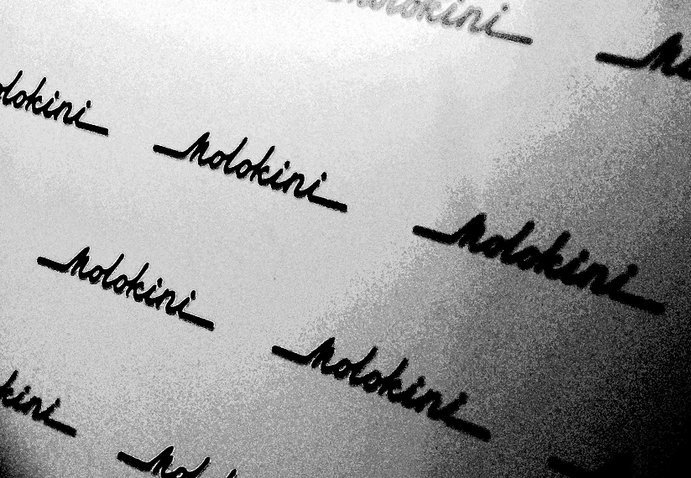 Molokini
Molokini
Molokini
Molokini
Molokini
Molokini